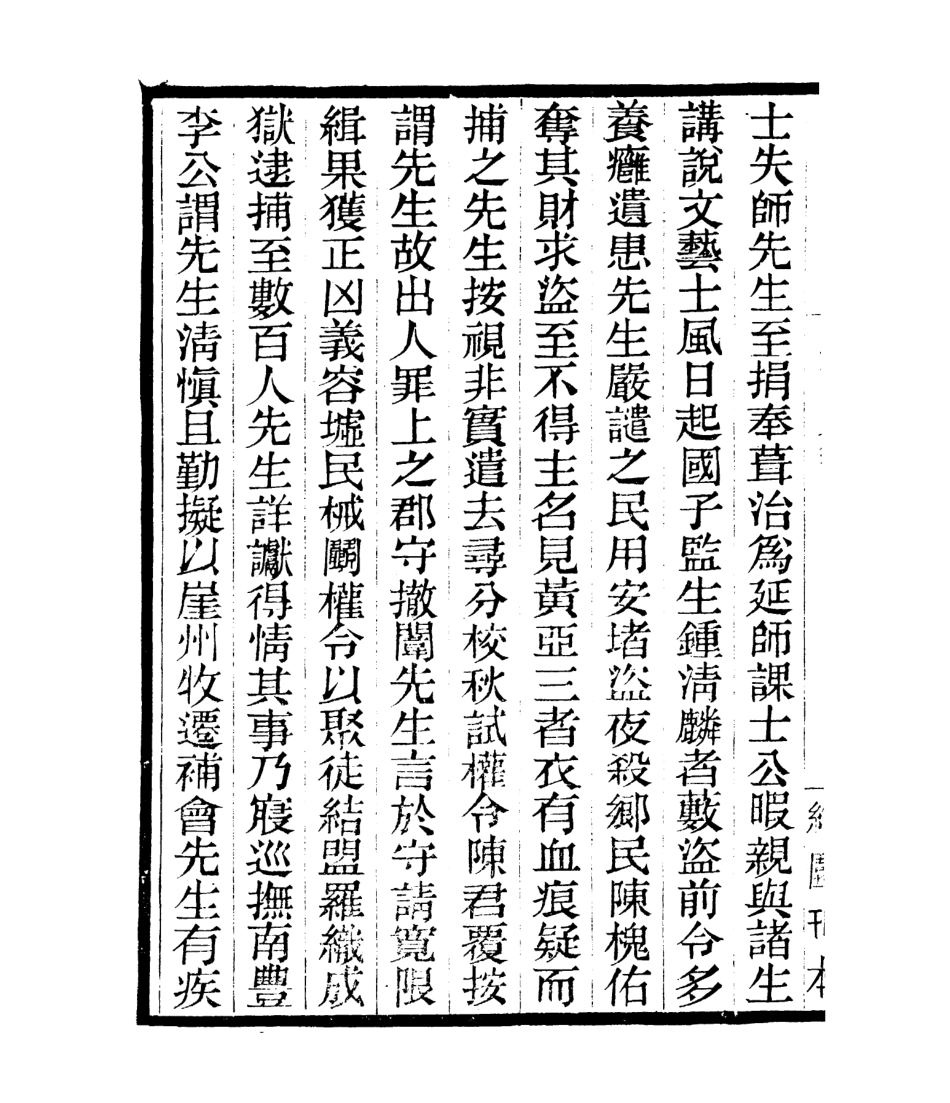 士失師先生至捐奉葺治爲延師課士公暇親與諸生
講說文藝士風日起國子監生鍾淸麟者藪盜前令多
養癰遺患先生嚴譴之民用安堵盜夜殺鄉民陳槐佑
奪其財求盜至不得主名見黃亞三者衣有血痕疑而
捕之先生按視非實遣去尋分校秋試權令陳君覆按
謂先生故出人罪上之郡守撤闈先生言於守請寬限
緝果獲正凶義容墟民械鬭權令以聚徒結盟羅織成
獄逮捕至數百人先生詳讞得情其事乃寢巡撫南豐
李公謂先生淸愼且勤擬以崖州牧遷補會先生有疾
刊本